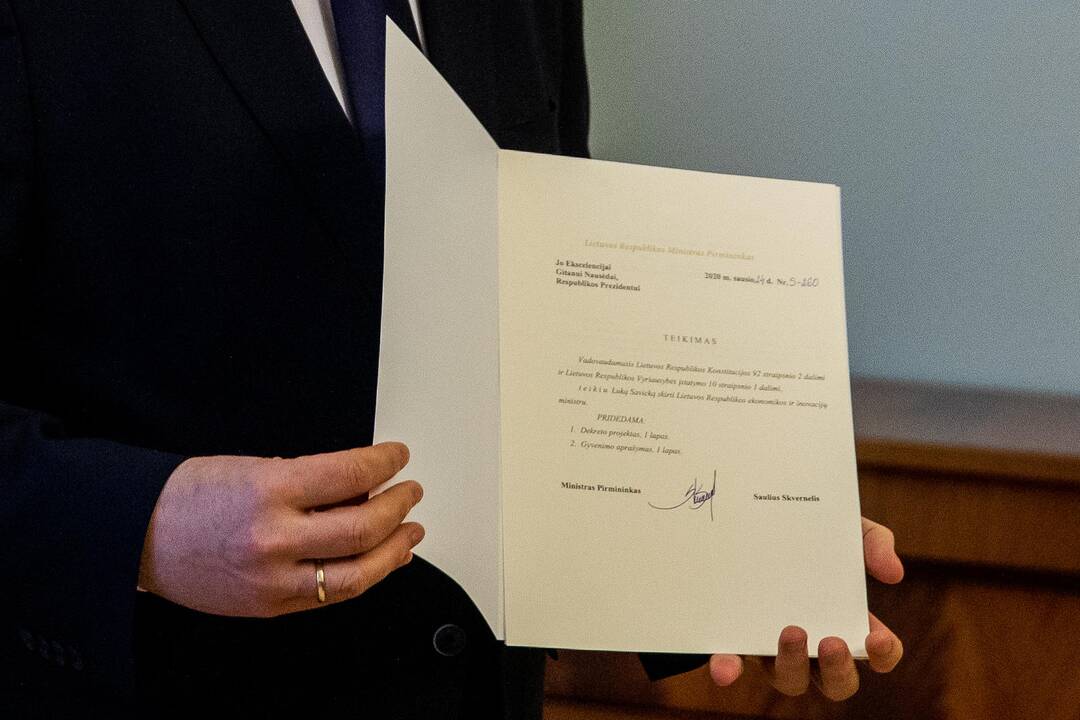 Lietuvos Respublikos Ministras Pirmininkas
Jo Ekscelencijai
Gitanui Nausėdai,
Respublikos Prezidentui
2020 m. sausio 24 d. Nr. S-260
TEIKIMAS
Vadovaudamasis Lietuvos Respublikos Konstitucijos 92 straipsnio 2 dalimi
ir Lietuvos Respublikos Vyriausybės įstatymo 10 straipsnio 1 dalimi,
teikiu Luką Savicką skirti Lietuvos Respublikos ekonomikos ir inovacijų
ministru.
PRIDEDAMA:
1. Dekreto projektas, 1 lapas.
2. Gyvenimo aprašymas, 1 lapas.
Ministras Pirmininkas
Saulius Skvernelis